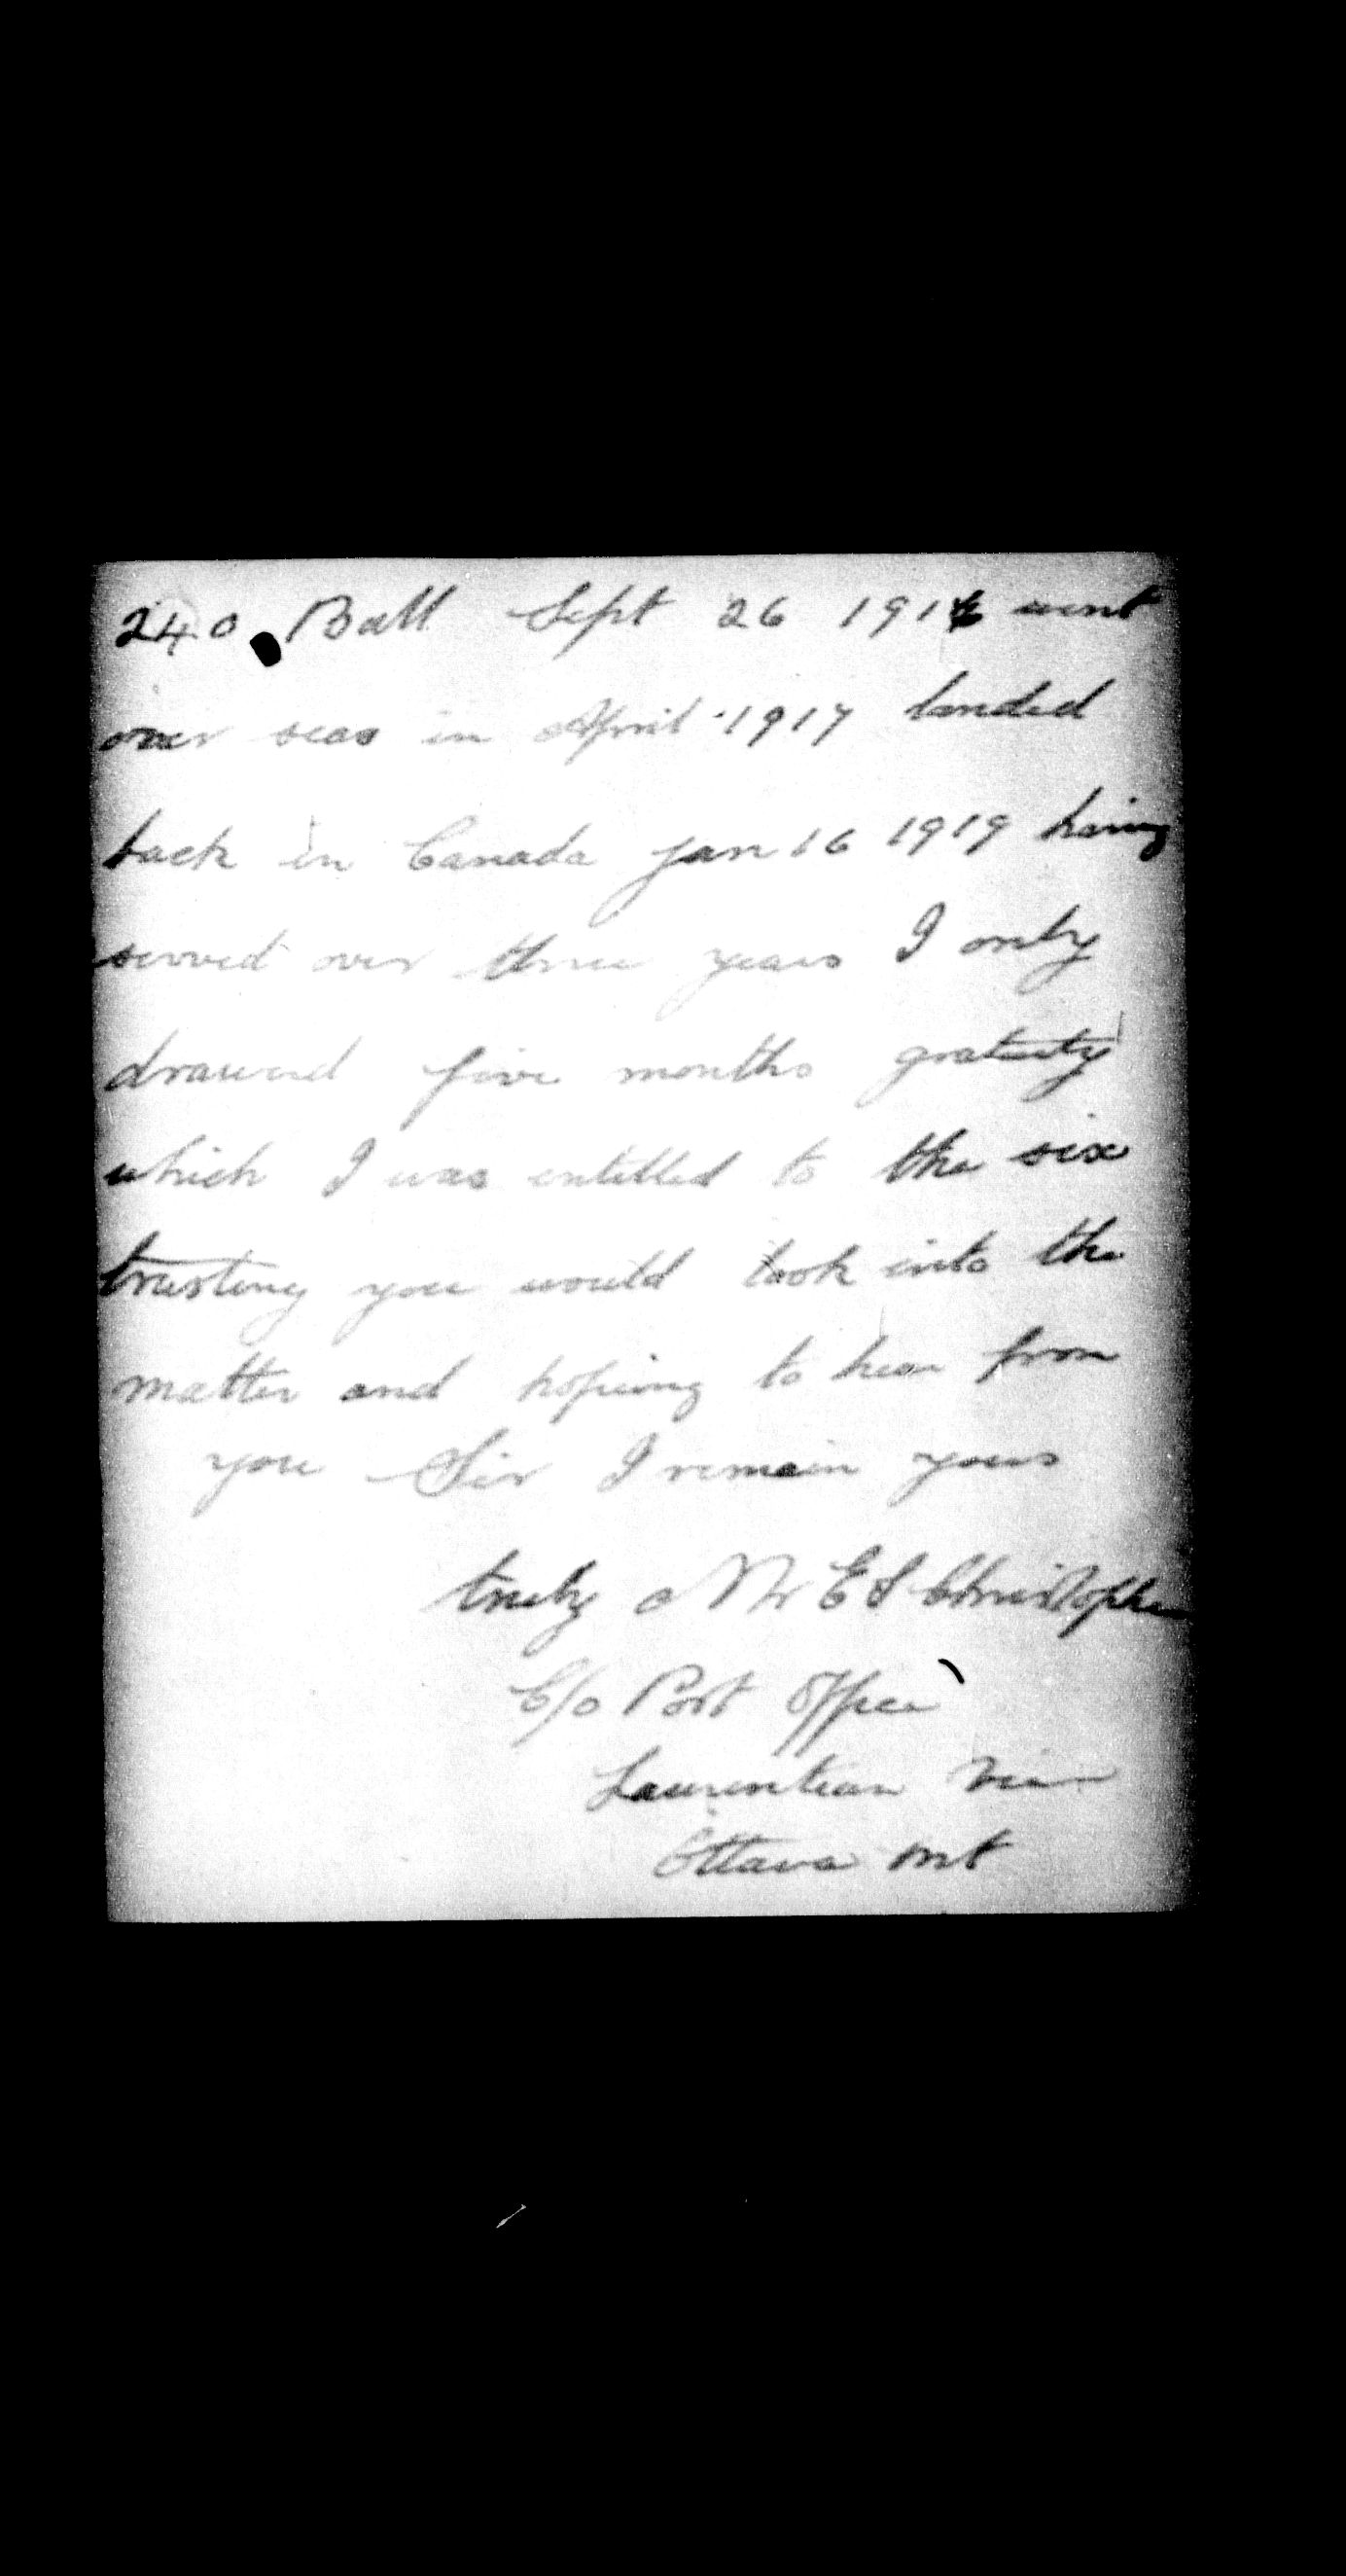 240 Batt Sept 26 1916 went
over seas in April 1917 landed
back in Canada Jan 16 1919 having
served over three years I only
drawed five months gratuity
which I was entitled to the six
trusting you would look into the
matter and hopeing to hear from
you Sir I remain yours
truly Mr E S Christopher
C/o Post Office
Laurentian View
Ottawa Ont